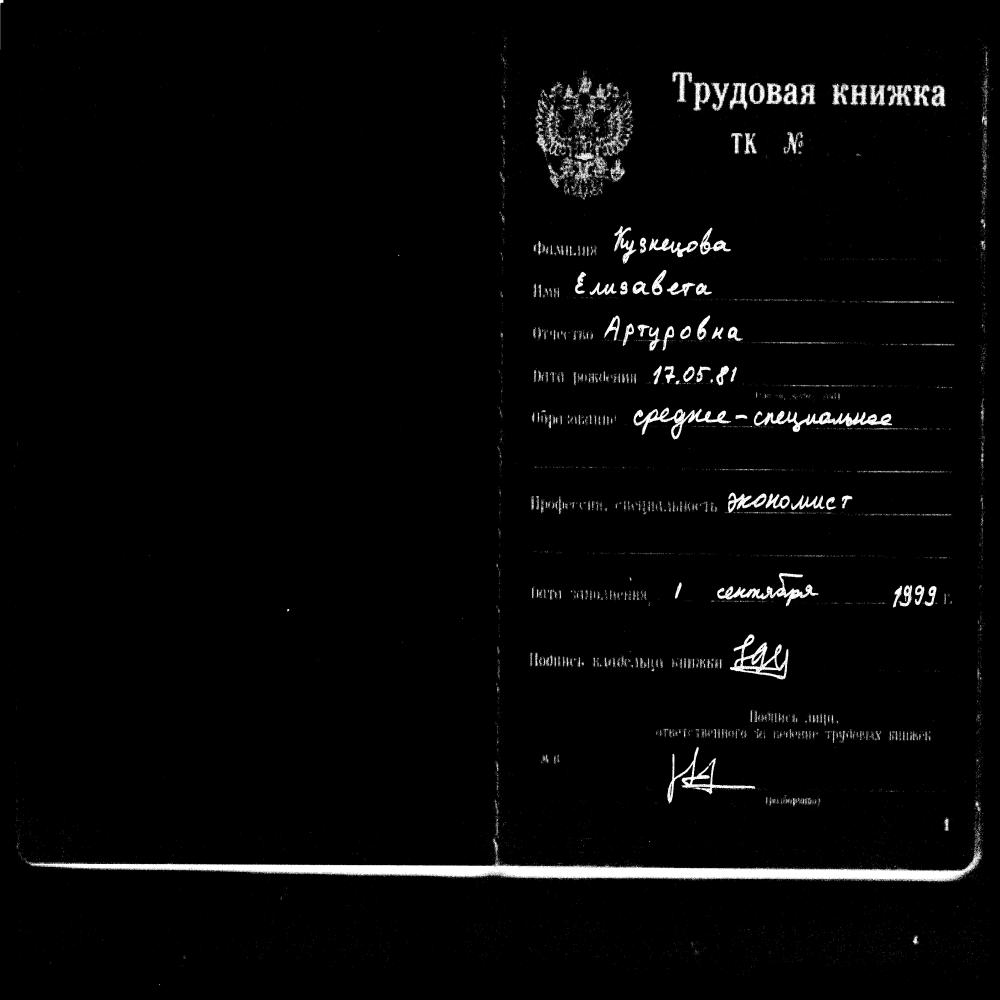 Трудовая книжка
ТК №
Фамилия Кузнецова
Имя Елизавета
Отчество Артуровна
Дата рождения 17.05.81
(число, месяц, год)
Образование среднее-специальное
Профессия, специальность экономист
Дата заполнения 1 сентября 1999 г.
Подпись владельца книжки
Подпись лица,
ответственного за ведение трудовых книжек
М П
(разборчиво)
1